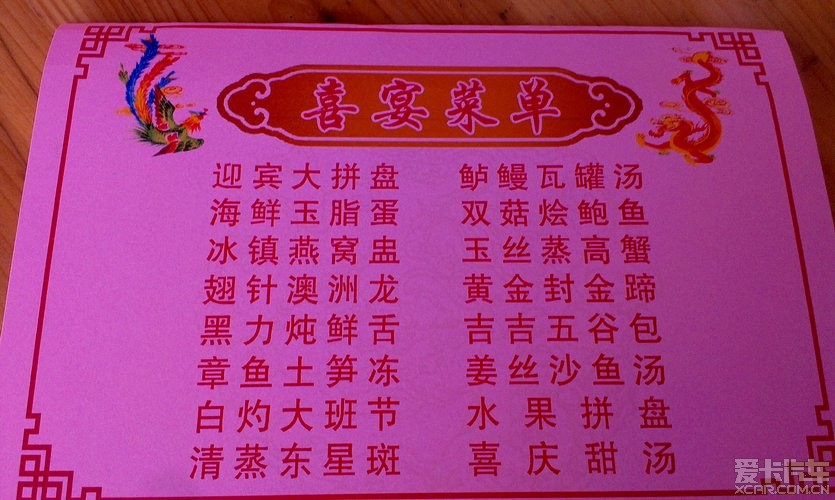 喜宴菜单
迎宾大拼盘
海鲜玉脂蛋
冰镇燕窝盅
翅针澳洲龙
黑力炖鲜舌
章鱼土笋冻
白灼大班节
清蒸东星斑
鲈鳗瓦罐汤
双菇烩鲍鱼
玉丝蒸高蟹
黄金封金蹄
吉吉五谷包
姜丝沙鱼汤
水果拼盘
喜庆甜汤
爱卡汽车
XCAR.COM.CN